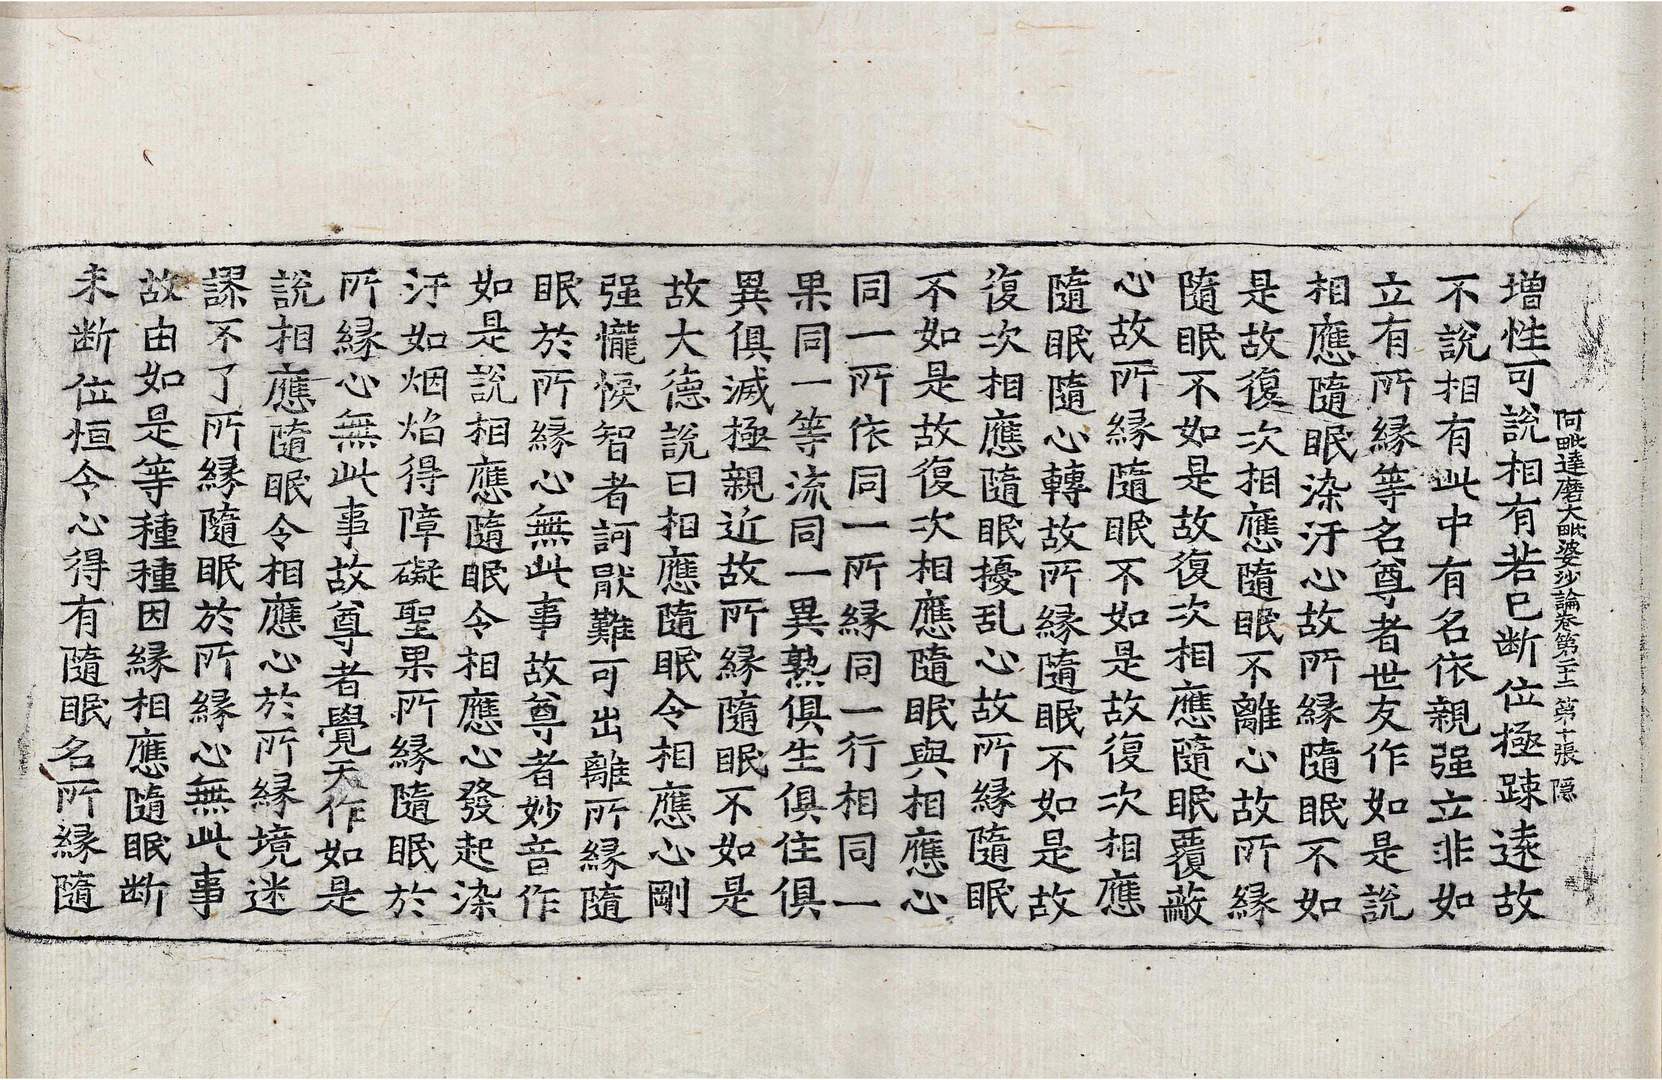 阿毗達磨大毗婆沙論卷第二十二 第十張 隱
增性可說相有若已断位極踈遠故
不說相有此中有名依親强立非如
立有所緣等名尊者世友作如是說
相應隨眠染汙心故所緣隨眠不如
是故復次相應隨眠不離心故所緣
隨眠不如是故復次相應隨眠覆蔽
心故所緣隨眠不如是故復次相應
隨眠隨心轉故所緣隨眠不如是故
復次相應隨眠擾乱心故所緣隨眠
不如是故復次相應隨眠與相應心
同一所依同一所緣同一行相同一
果同一等流同一異熟俱生俱住俱
異俱滅極親近故所緣隨眠不如是
故大德說曰相應隨眠令相應心剛
强𢤱悷智者訶猒難可出離所緣隨
眠於所緣心無此事故尊者妙音作
如是說相應隨眠令相應心發起染
汙如烟焰得障礙聖果所緣隨眠於
所緣心無此事故尊者覺天作如是
說相應隨眠令相應心於所緣境迷
謬不了所緣隨眠於所緣心無此事
故由如是等種種因緣相應隨眠断
未断位恒令心得有隨眠名所緣隨